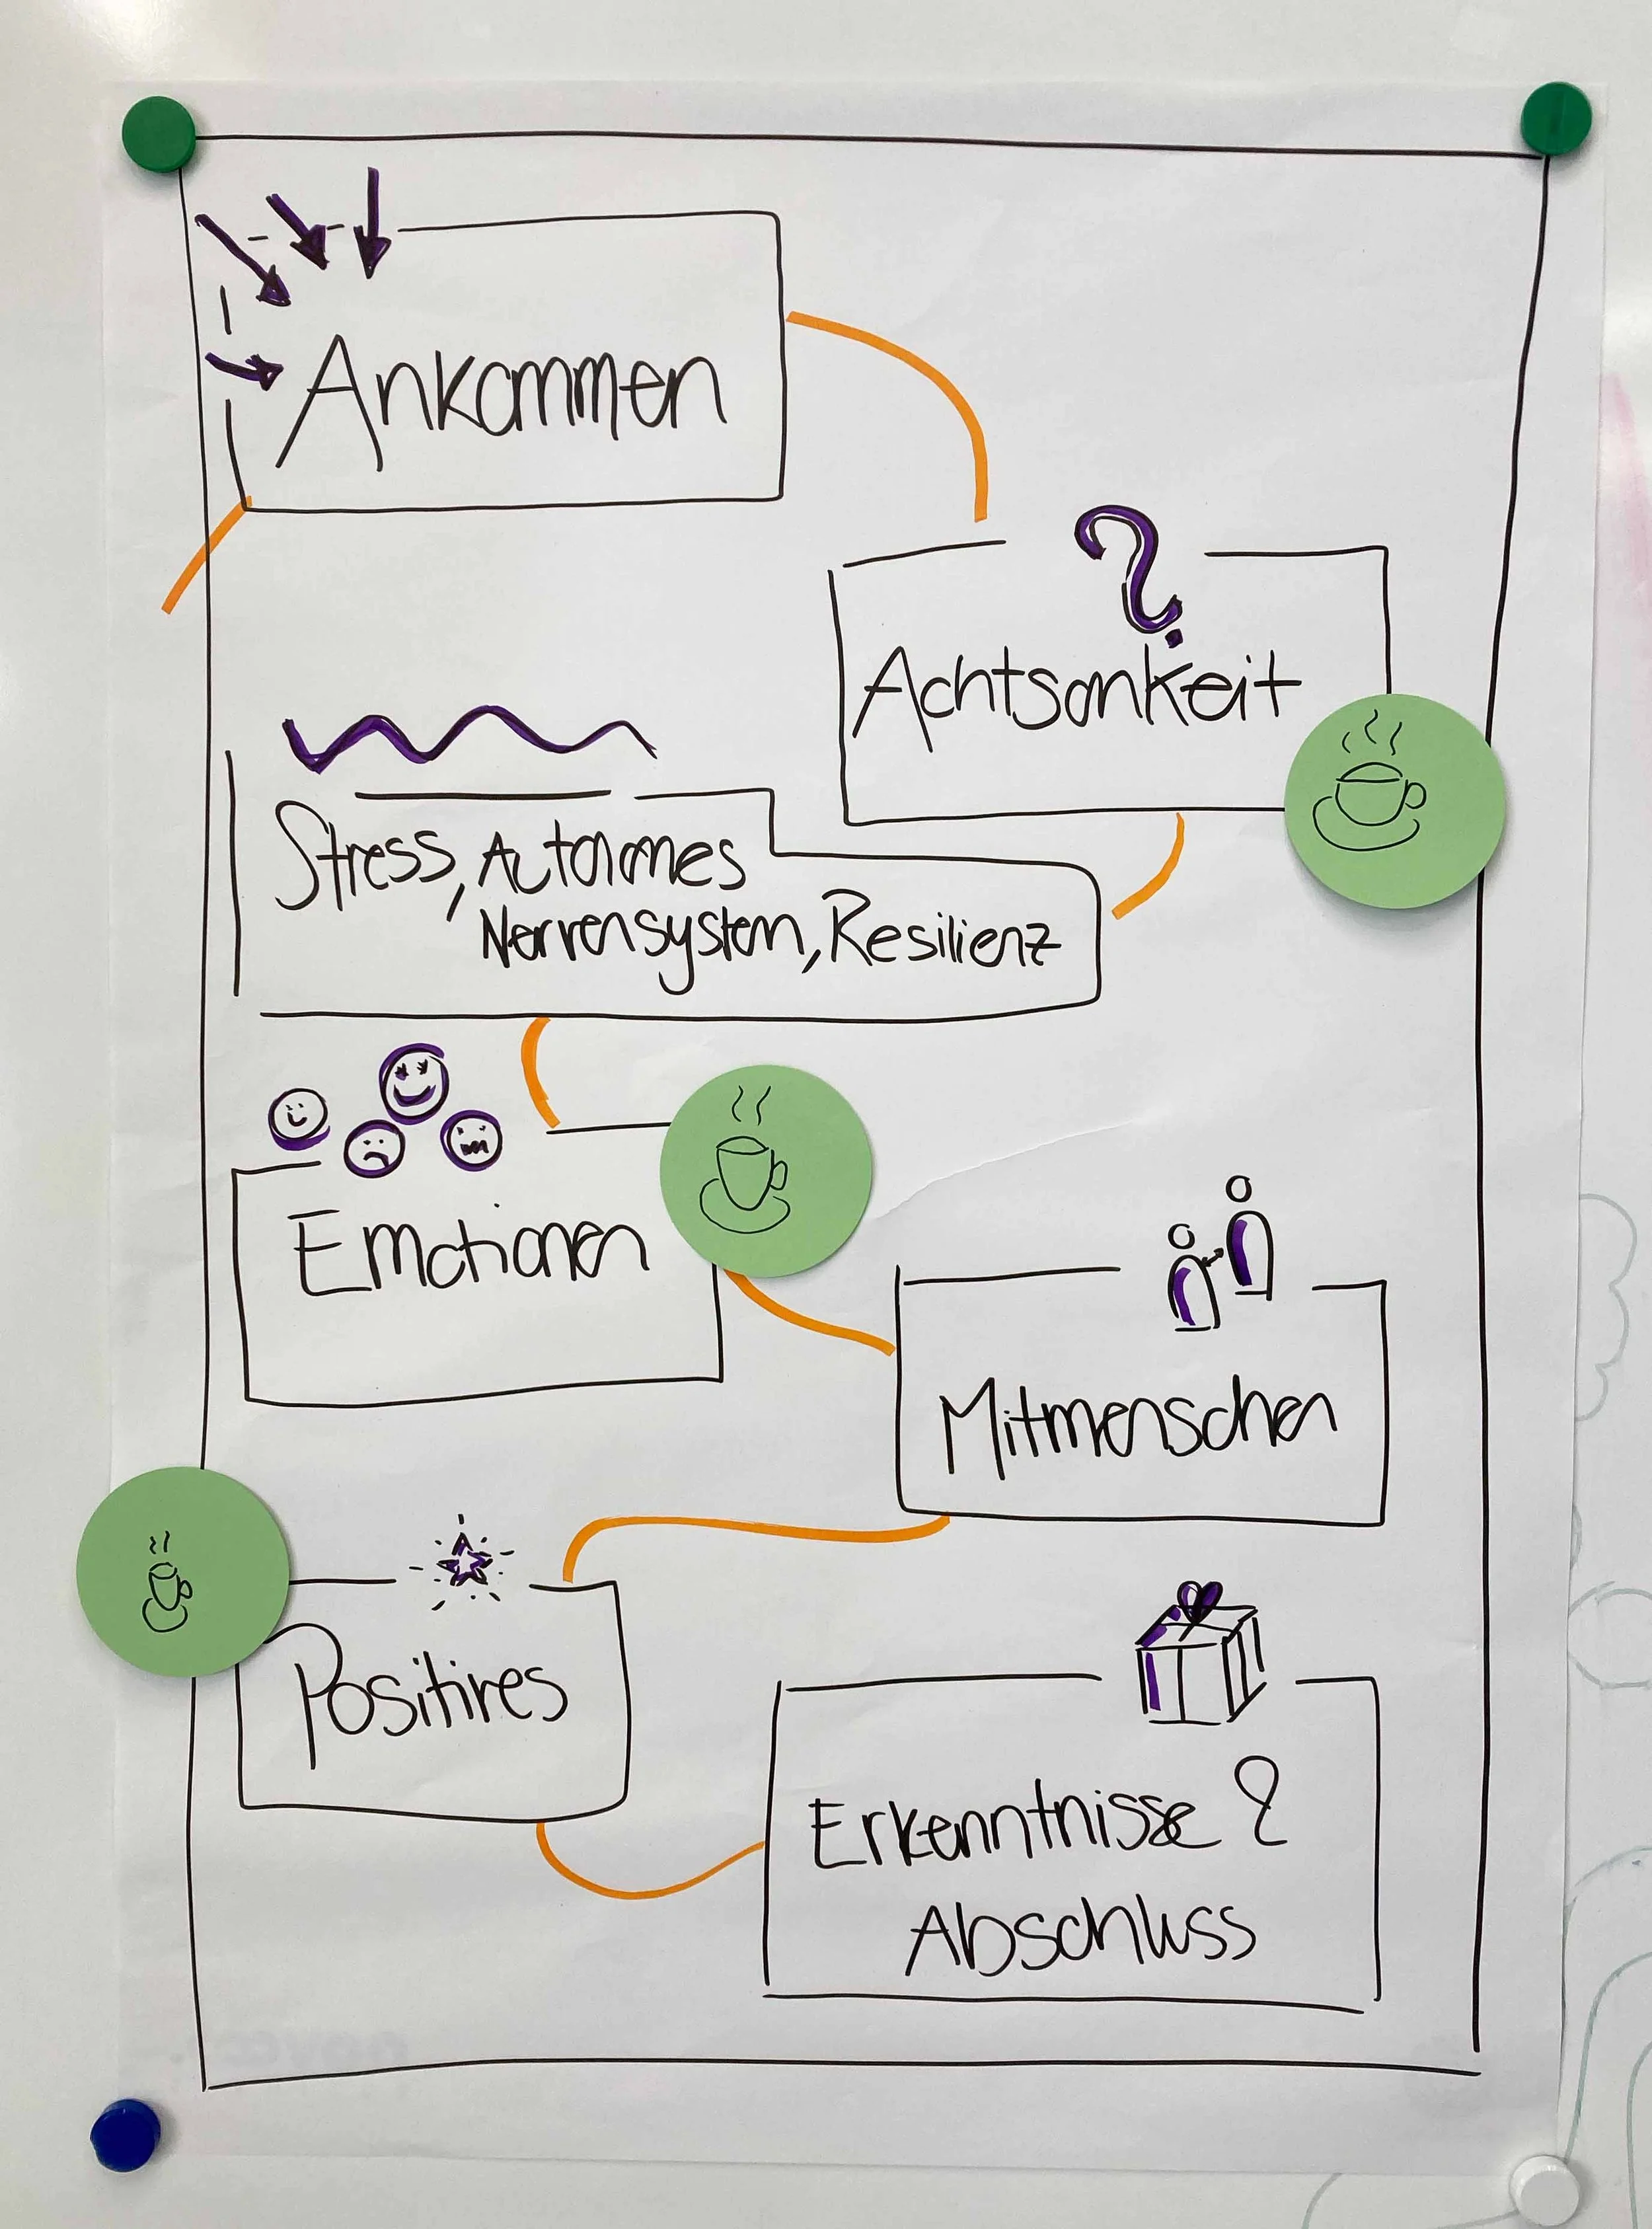 Ankommen
Achtsamkeit
Stress, Autonomes
Nervensystem, Resilienz
Emotionen
Mitmenschen
Positives
Erkenntnisse &
Abschluss